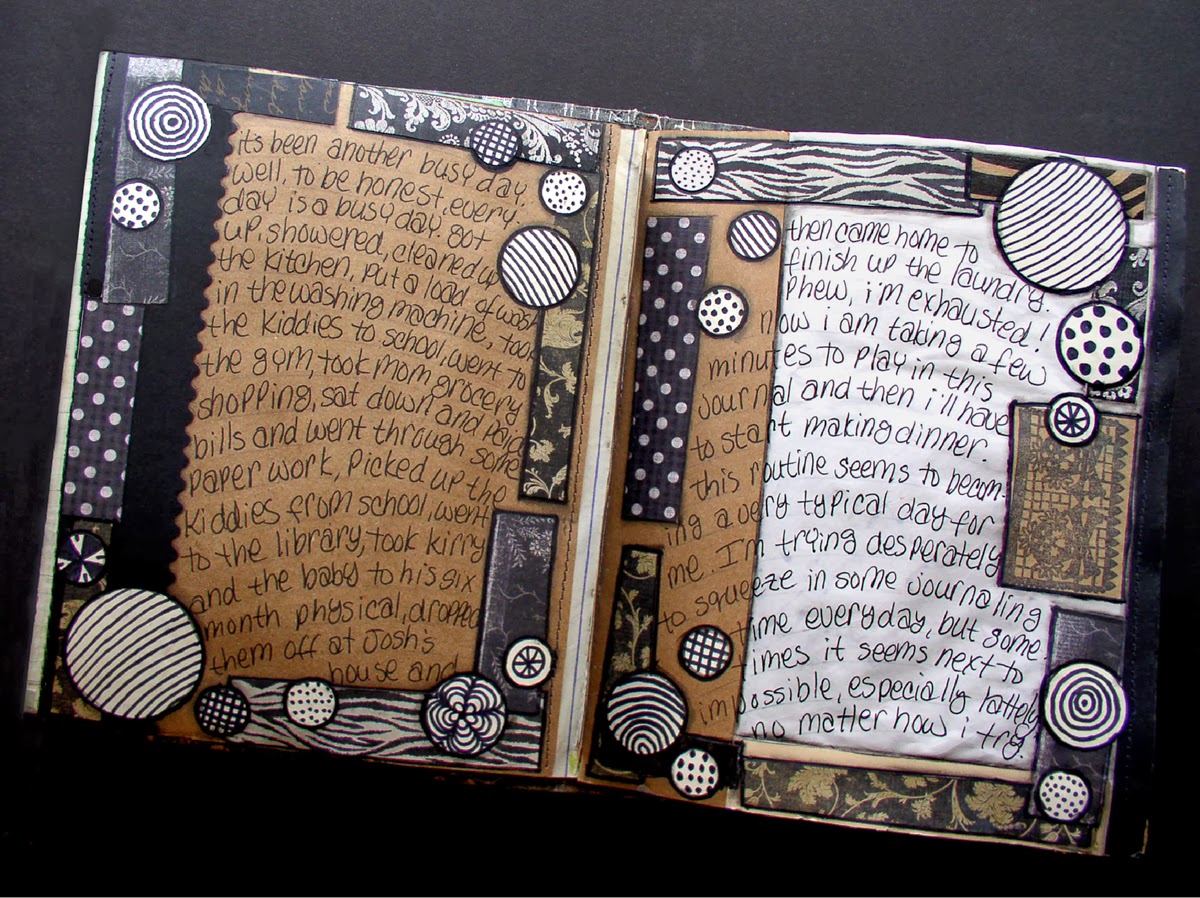 it's been another busy day.
well, to be honest, every
day is a busy day. got
up, showered, cleaned up
the kitchen. put a load of wash
in the washing machine, took
the kiddies to school, went to
the gym, took mom grocery
shopping, sat down and paid
bills and went through some
paper work, picked up the
kiddies from school, went
to the library, took kirry
and the baby to his six
month physical, dropped
them off at Josh's
house and
then came home to
finish up the laundry.
Phew, i'm exhausted!
now i am taking a few
minutes to play in this
journal and then i'll have
to start making dinner.
this routine seems to becom-
ing a very typical day for
me. I'm trying desperately
to squeeze in some journaling
time everyday, but some
times it seems next to
impossible, especially lattely
no matter how i try.